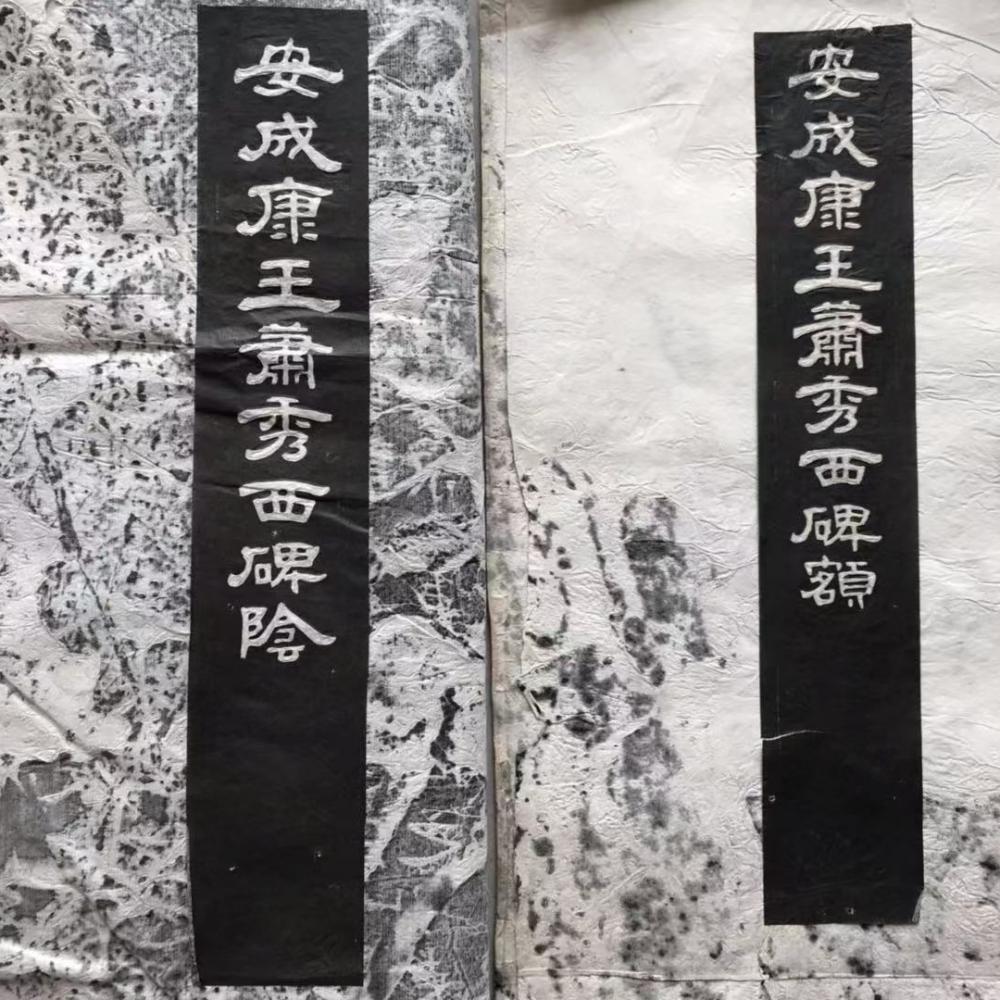 安成康王蕭秀西碑額
安成康王蕭秀西碑陰